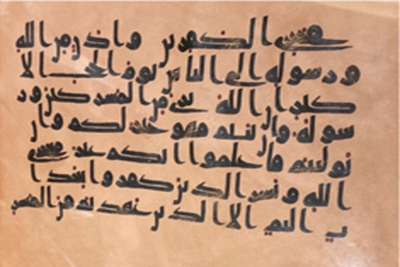 مخزي الكفرين واذن من الله
ورسوله الى الناس يوم الحج الا
كبر ان الله بري من المشركين ور
سوله فان تبتم فهو خير لكم وان
توليتم فاعلموا انكم غير معجزي
الله وبشر الذين كفروا بعذا
ب اليم الا الذين عهدتم من المشر